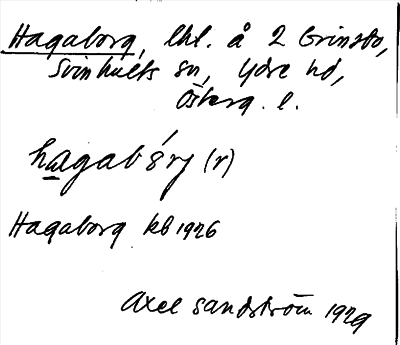 Hagaborg, lht. å 2 Grinsbo,
Svinhults sn, Ydre hd,
Österg. l.
Hagaborg kb 1926
Axel Sandström 1929